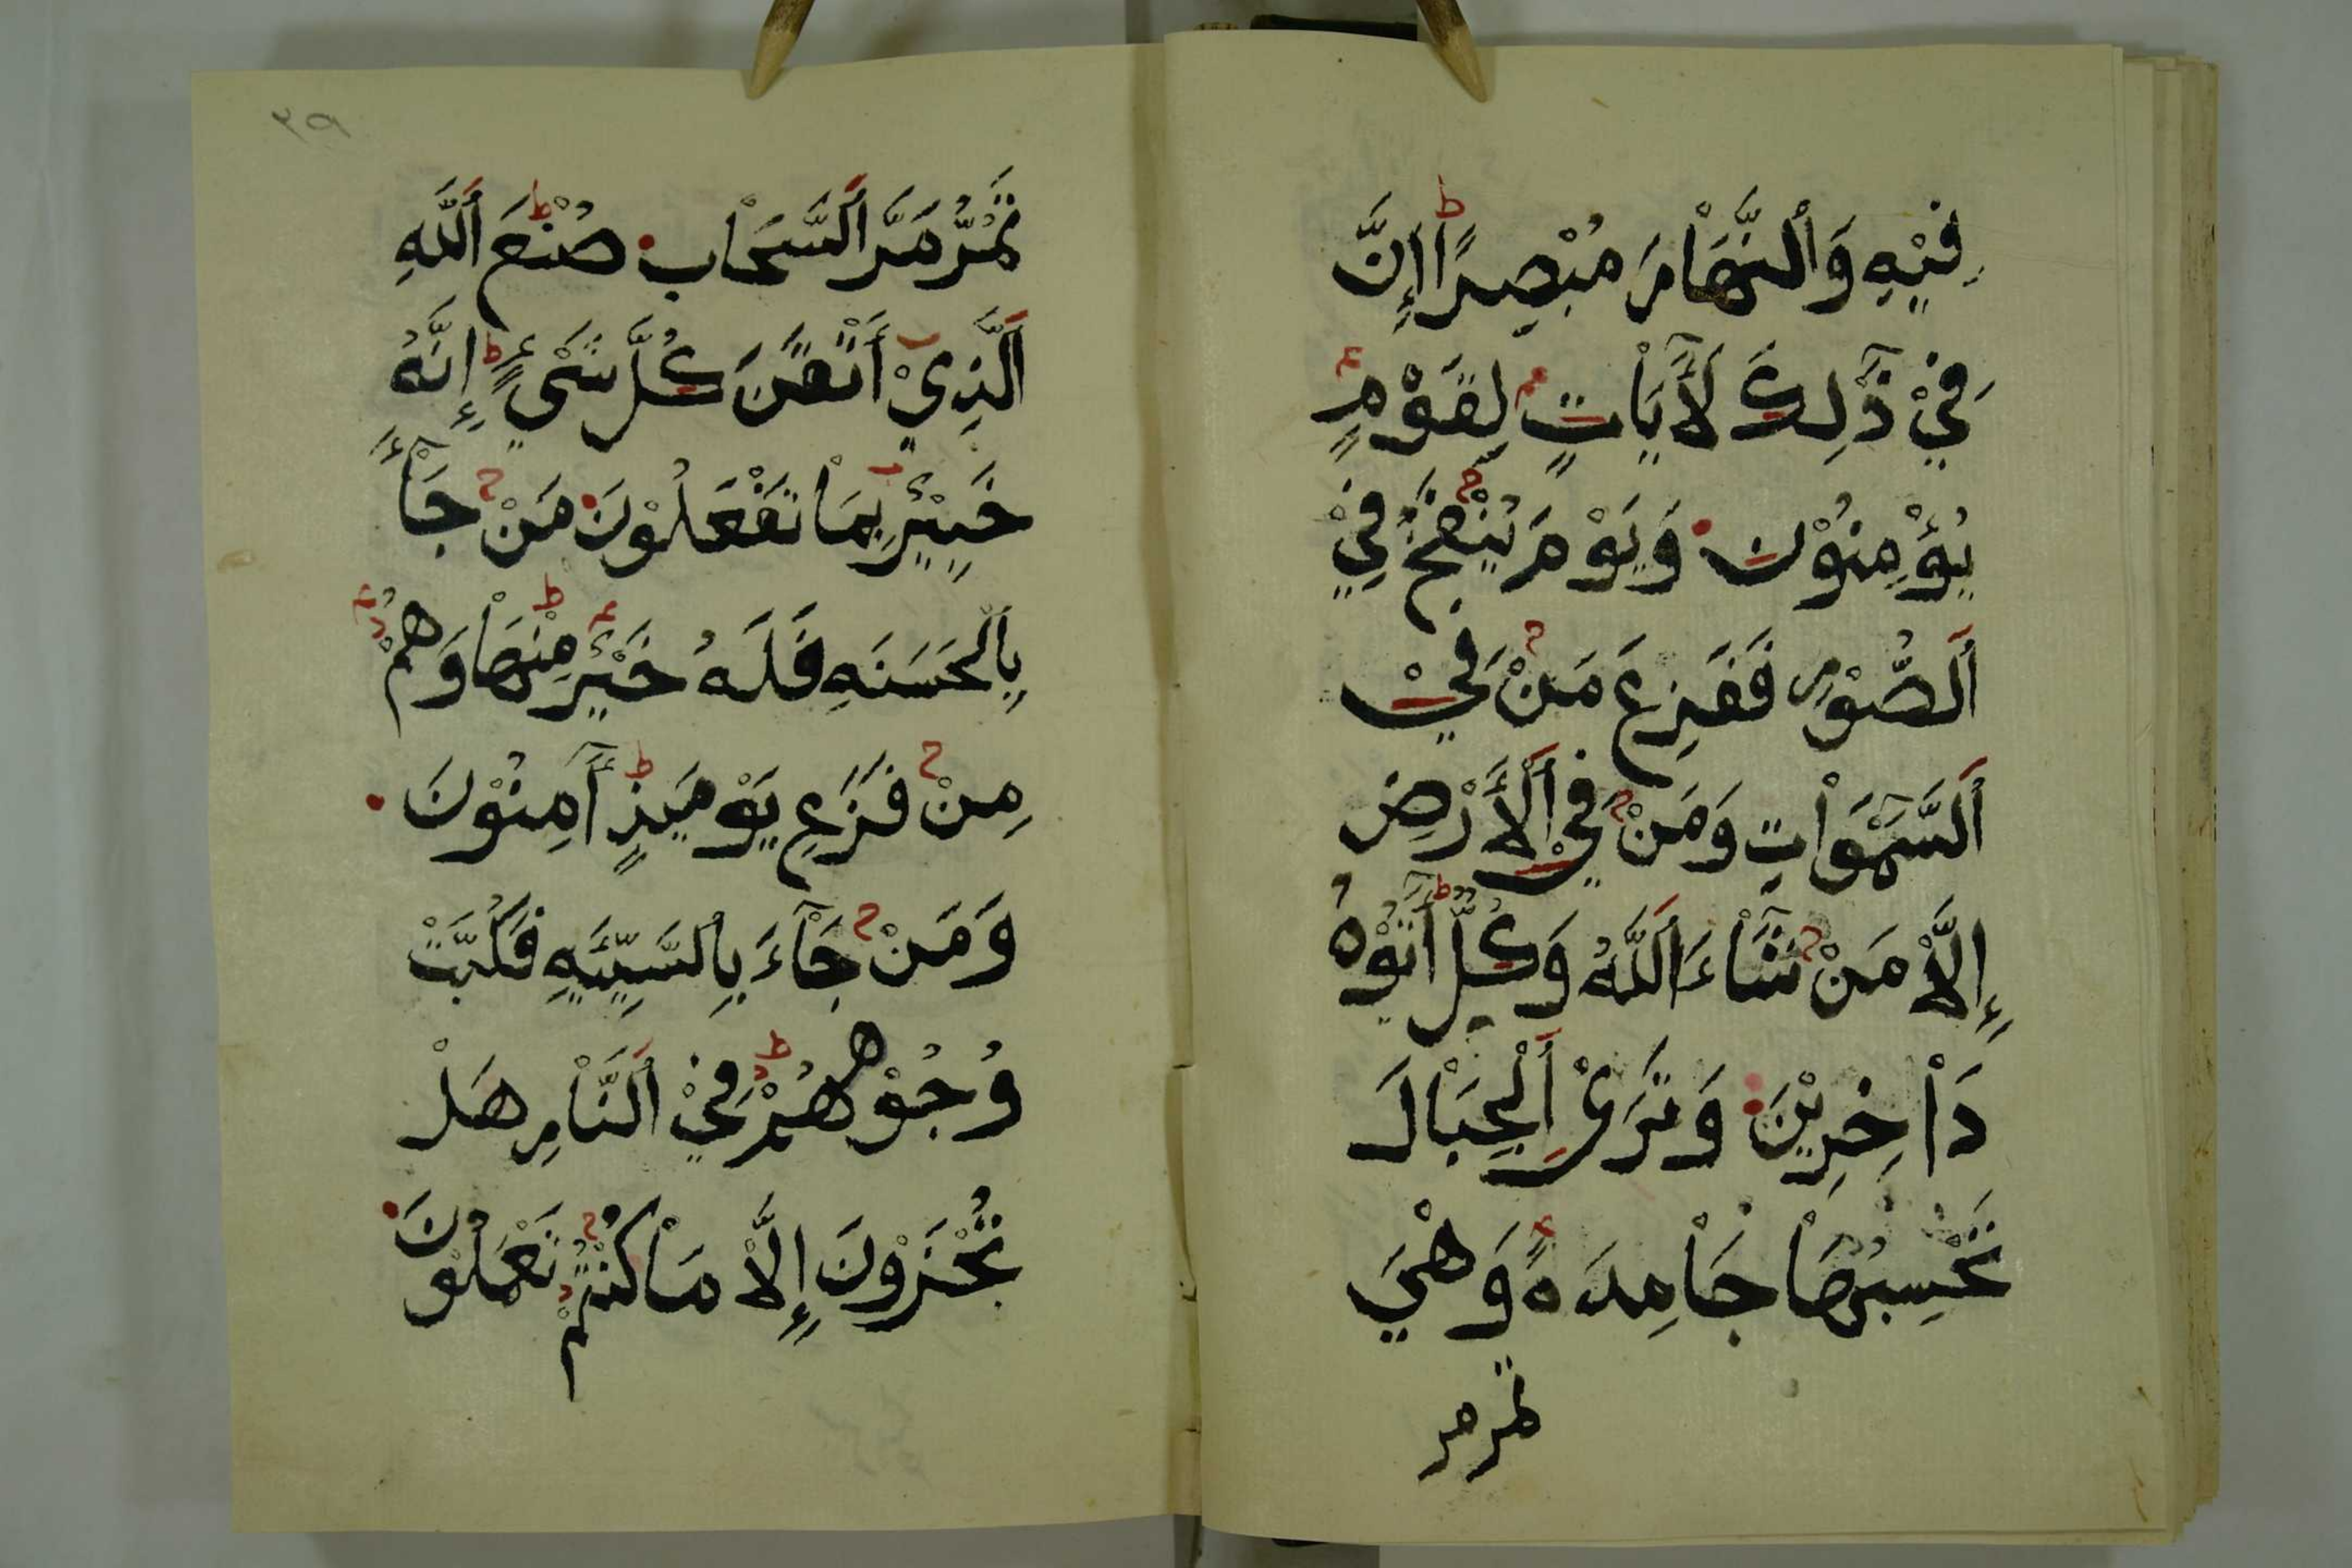 فِيْهِ وَاَلْنَّهَاْرَ مُبْصِرًا إِنَّ
فِيْ ذَٰلِكَ لَأٓيَاْتٍ لِقَوْمٍ
يُؤْمِنُوْنَ وَيَوْمَ يُنْفَخُ فِيْ
اَلصُّوْرِ فَفَزِعَ مَنْ فِيْ
اَلسَّمٰوَاْتِ وَمَنْ فِيْ اَلْأَرْضِ
إِلَّاْ مَنْ شَآءَ اَللَّهُ وَكُلٌّ أَتَوْهُ
دَاْخِرِيْنَ وَتَرَىْ اَلْجِبَاْلَ
تَحْسِبُهَاْ جَاْمِدَةً وَهْيَ
تمر مر
٣٩
تَمُرُّ مَرَّ اَلسَّحَاْبِ صُنْعَ اَللَّهِ
اَلَّذِيْ أَتْقَنَ كُلَّ شَيْءٍ إِنَّهُ
خَبِيْرٌ بِمَاْ تَفْعَلُوْنَ مَنْ جَآءَ
بِالْحَسَنَهِ فَلَهُ خَيْرٌ مِنْهَاْ وَهُمْ
مِنْ فَزَعِ يَوْمَئِذٍ أٓمِنُوْنَ
وَمَنْ جَآءَ بِالسَّيِّئَهِ فَكُبَّتْ
وُجُوْهُهُمْ فِيْ اَلنَّاْرِ هَلْ
تُجْزَوْنَ إِلَّاْ مَاْ كُنْتُمْ تَعْمَلُوْنَ